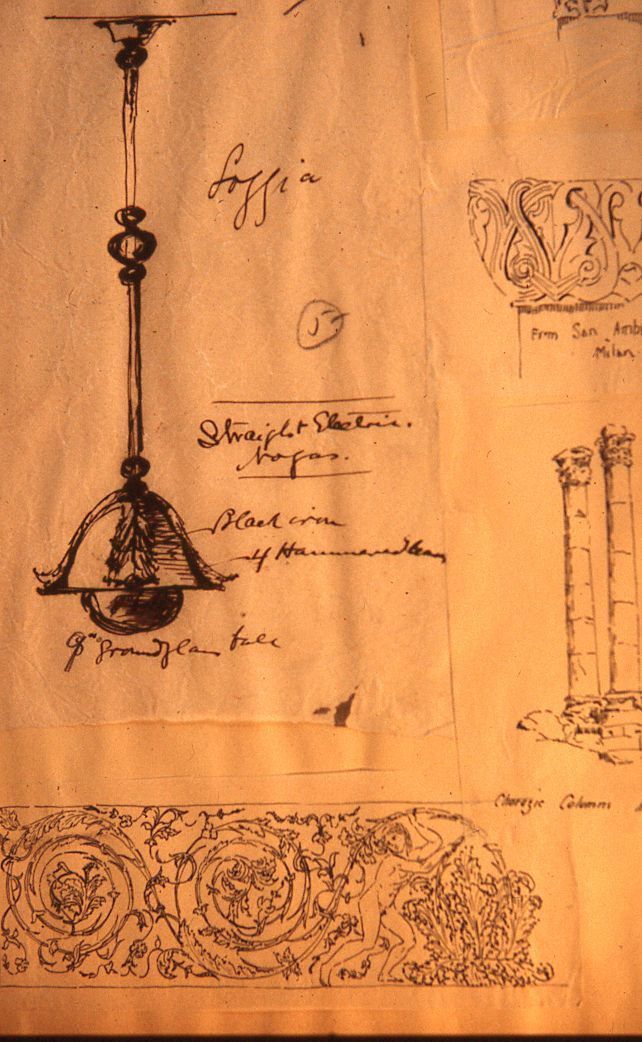 Loggia
5
Straight Electric.
No gas.
Black iron
4 Hammered leaves
9" ground glass ball
From San Amb
Milan
Choragic Columns A